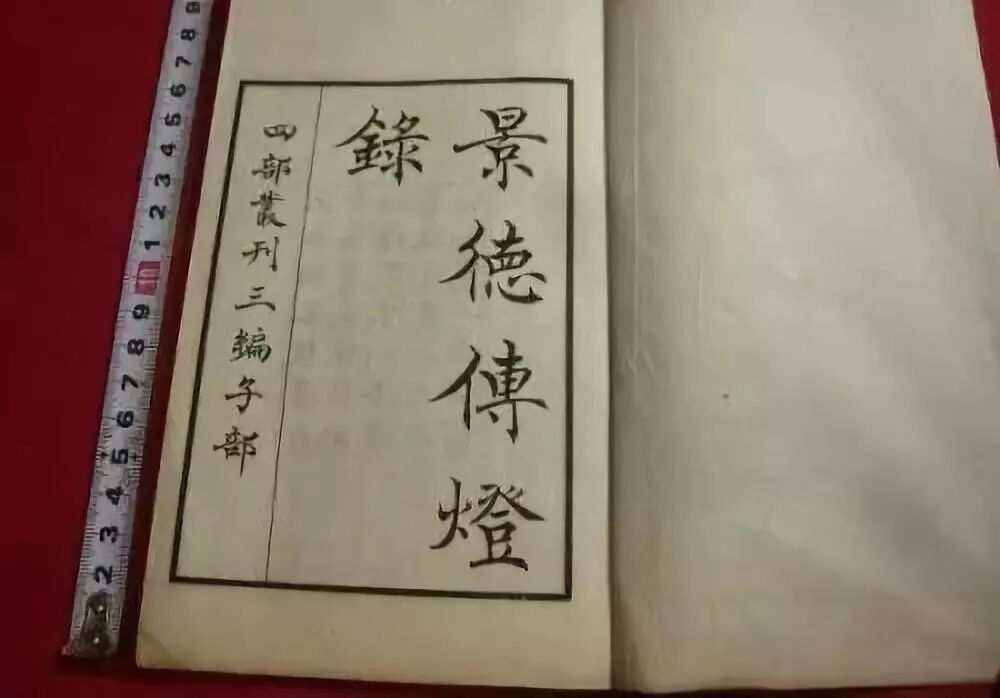 景德傳燈
錄
四部叢刊三編子部
9
8
7
6
5
4
3
2
1
10
9
8
7
6
5
4
3
2